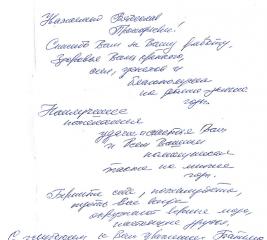 Уважаемый Вячеслав
Прокофьевич!
Спасибо Вам за Вашу работу,
Здоровья Вам крепкого,
сил, успехов и
благополучия
на долгие
годы.
Наилучшие
пожелания
удачи и счастья Вам
и всем Вашим
на многие
годы.
Берегите себя, пожалуйста,
пусть Вас всегда
окружают верные
настоящие друзья.
С уважением к Вам